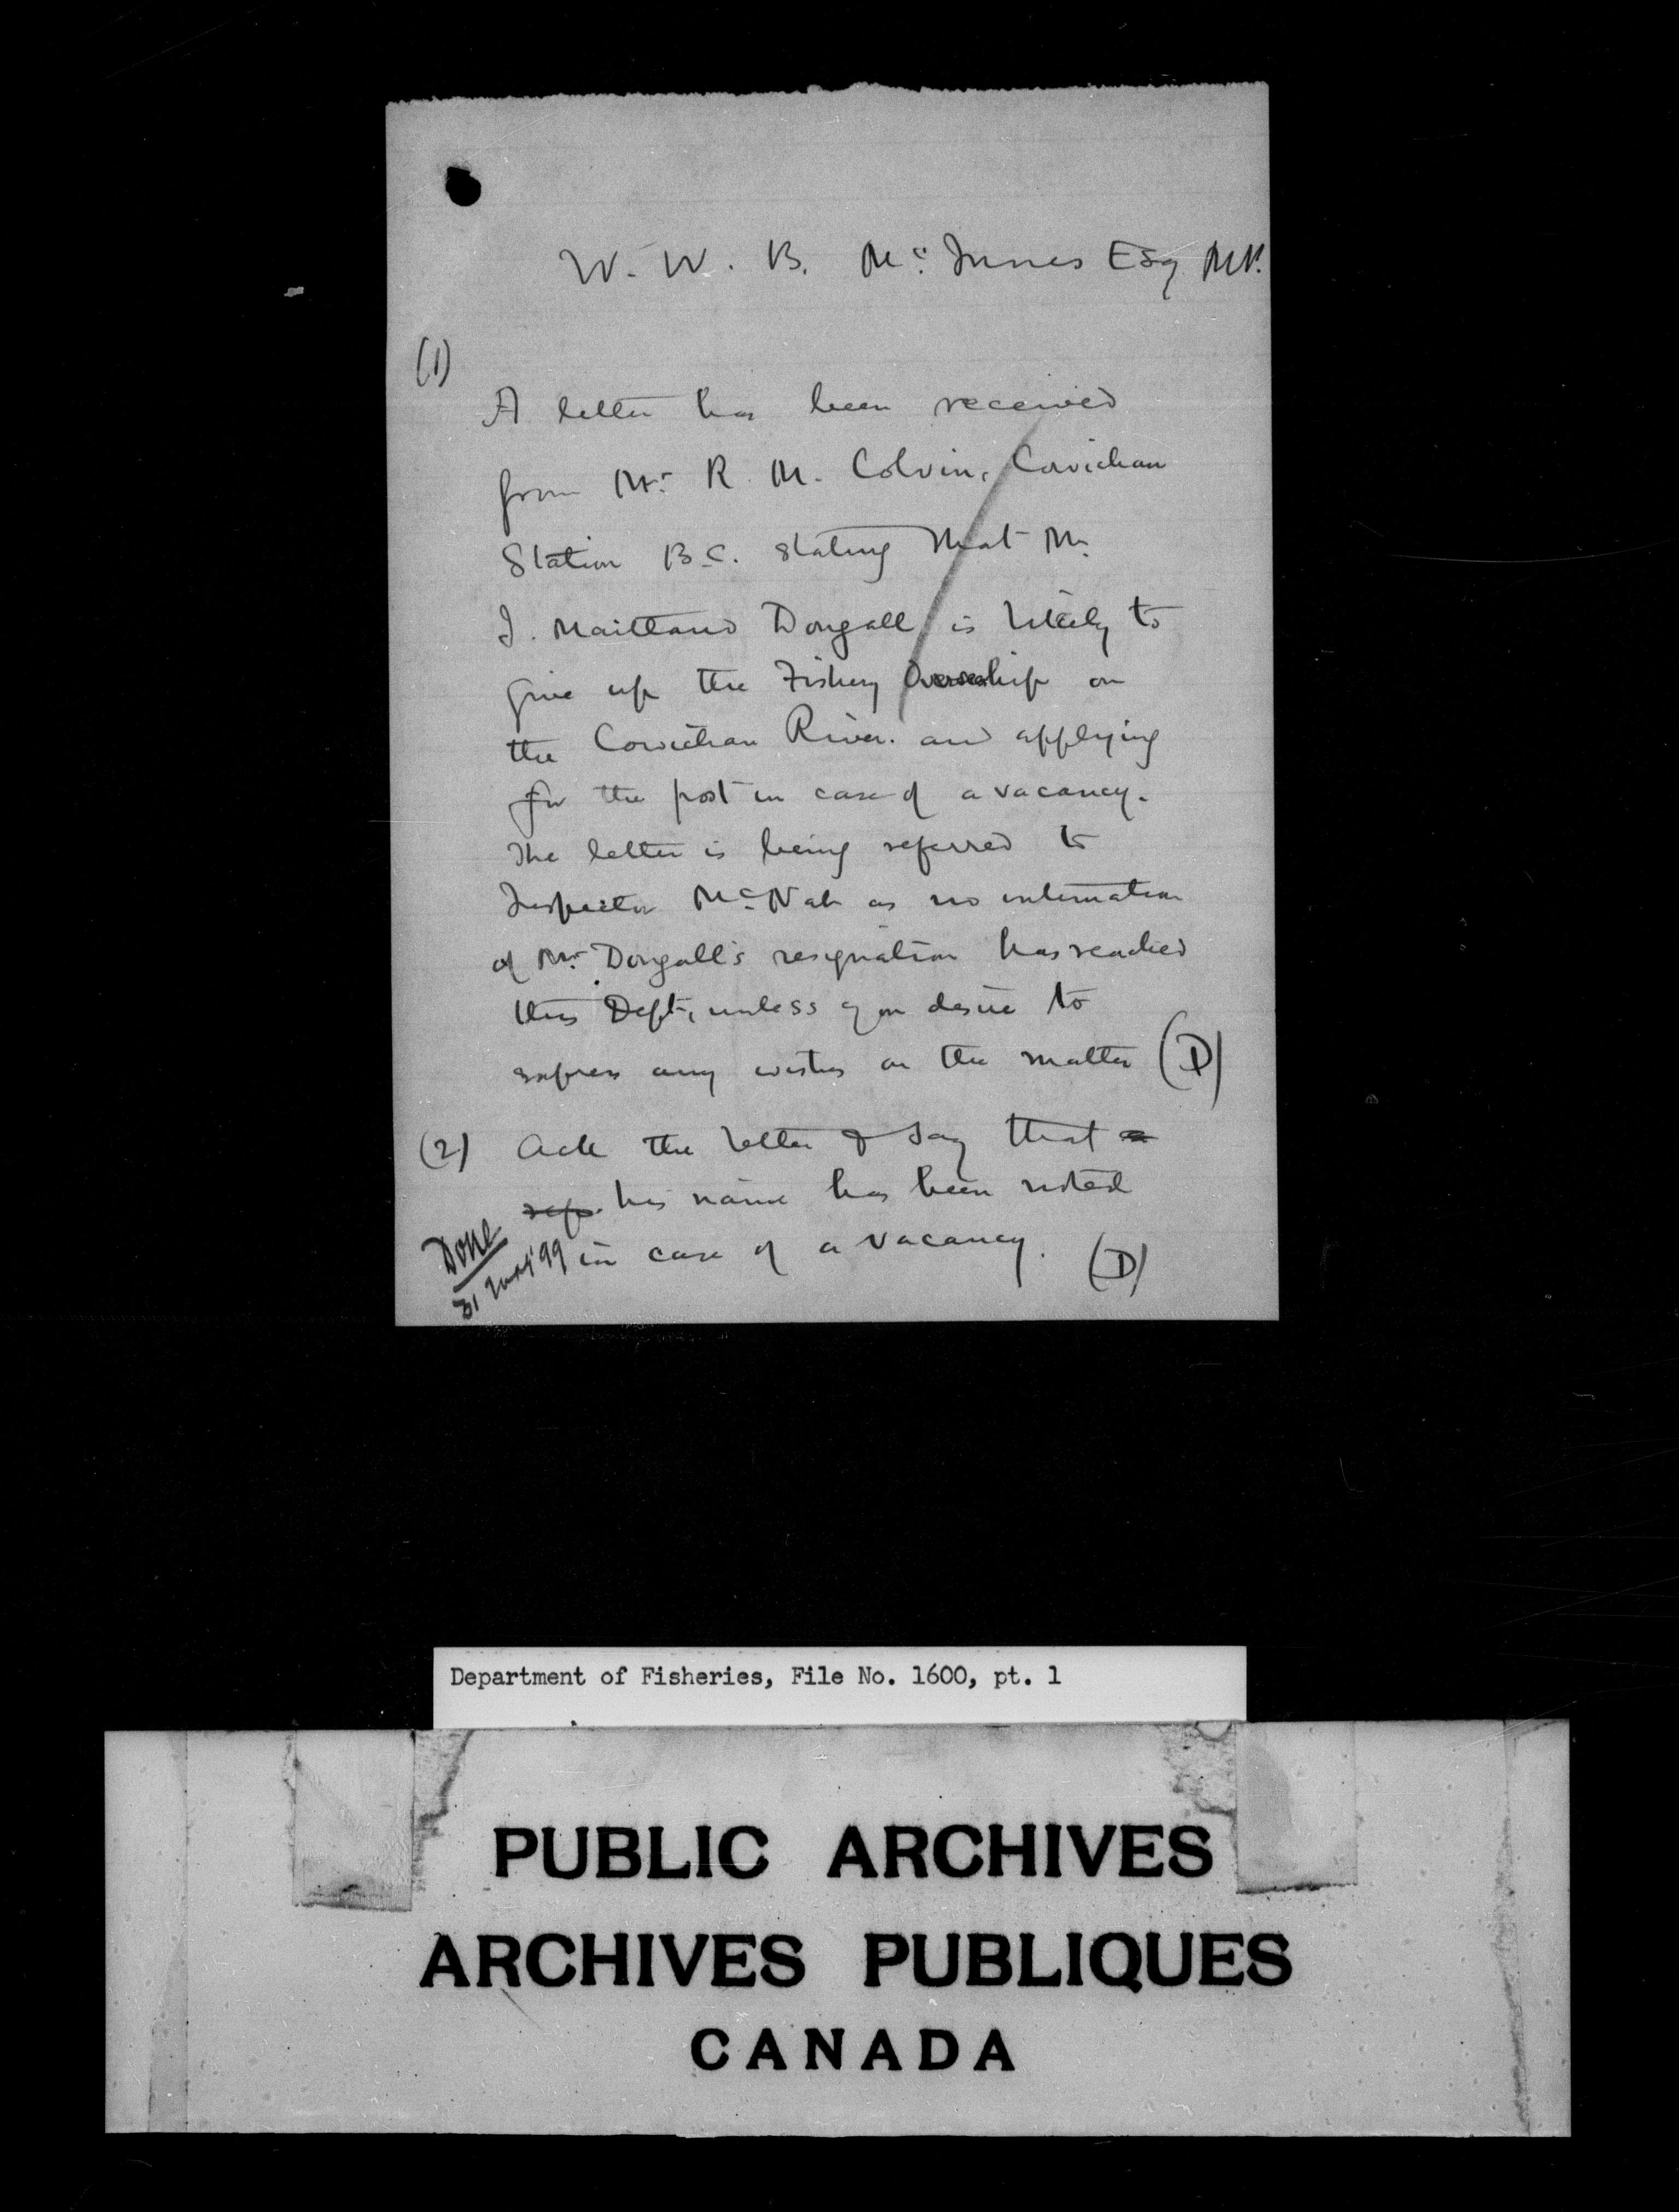 W. W. B. McInnes Esq M.P.
(1)
A letter has been received
from Mr. R. M. Colvin, Cowichan
Station B.C. stating that Mr.
J. Maitland Dougall is likely to
give up the Fishery Overseership on
the Cowichan River. and applying
for the post in case of a vacancy.
The letter is being referred to
Inspector McNab as no intimation
of Mr. Dougall's resignation has reached
this Dept, unless you desire to
express any wishes on the matter (D)
(2) Ack the letter & say that
his name has been noted
in case of a vacancy. (D)
Done
31 May '99
Department of Fisheries, File No. 1600, pt. 1
PUBLIC ARCHIVES
ARCHIVES PUBLIQUES
CANADA